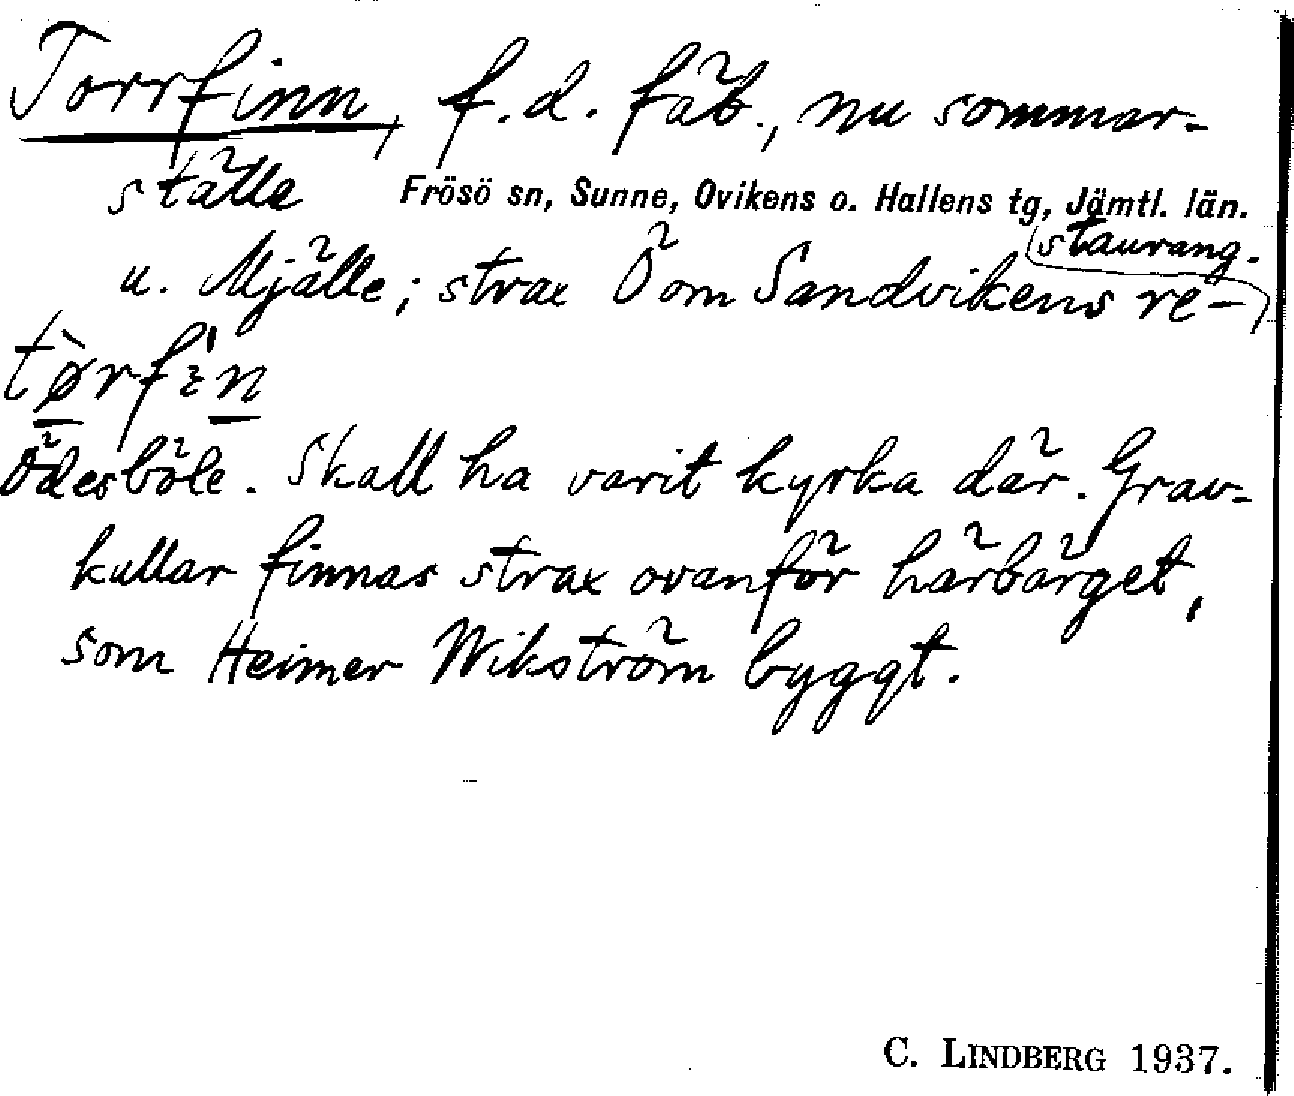 Torrfinn, f.d. fäb., nu sommar-
ställe Frösö sn, Sunne, Ovikens o. Hallens tg, Jämtl. län.
u. Mjälle; strax Ö om Sandvikens re-
staurang.
tørfin
Ödesböle. Skall ha varit kyrka där. Grav-
kullar finnas strax ovanför härbärget,
som Heimer Wikström byggt.
C. LINDBERG 1937.